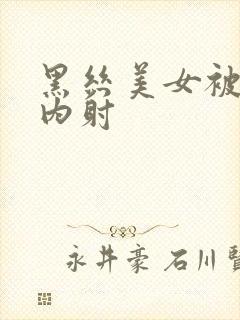 黑丝美女被
内射
永井豪 石川賢